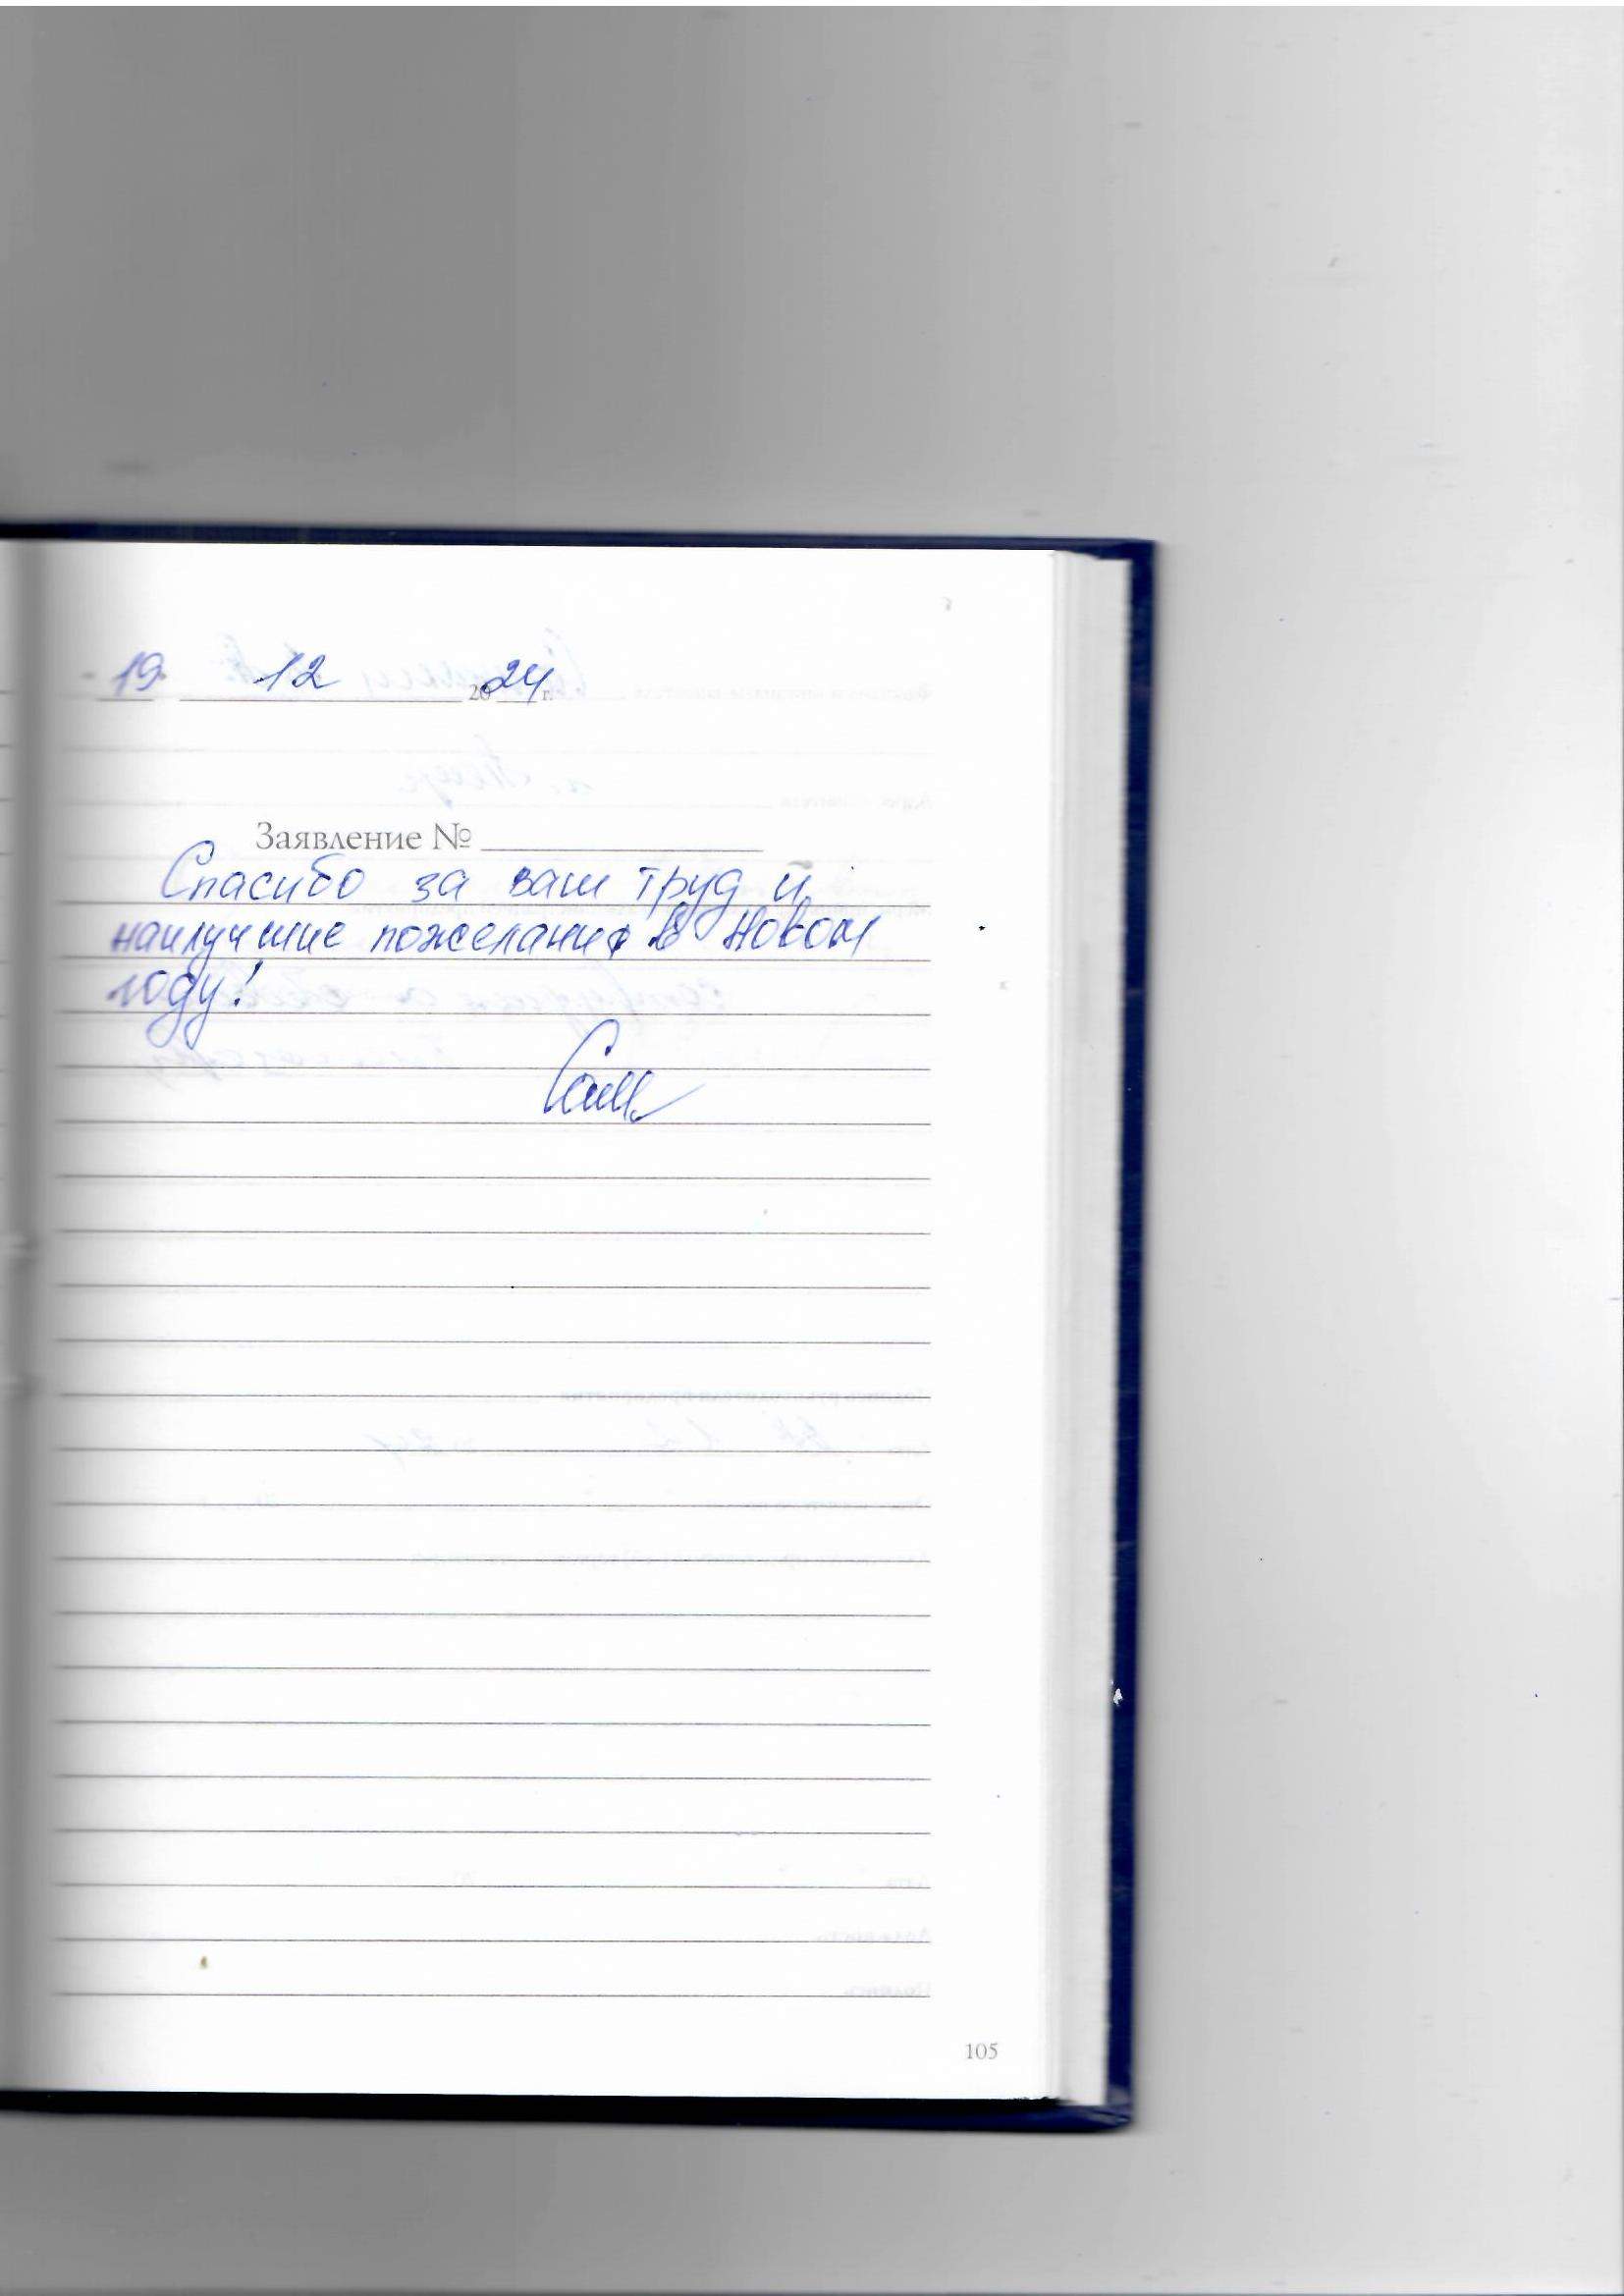 19 12 2024 г.
Заявление №
Спасибо за ваш труд и
наилучшие пожелания в Новом
году!
105